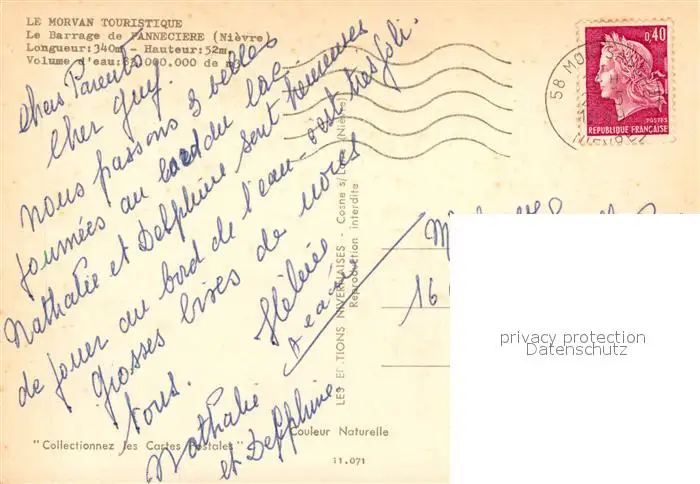 LE MORVAN TOURISTIQUE
Le Barrage de PANNECIERE (Nièvre)
Longueur:340m - Hauteur:52m
Volume d'eau:82.000.000 de m
Chers Parents
Cher guy.
nous passons 3 belles
journées au bord du lac.
Nathalie et Delphine sont heureuses
de jouer au bord de l'eau - c'est très joli.
Grosses bises de nous
tous.
Hélène
Jean
Nathalie
et Delphine
"Collectionnez les Cartes Postales"
Couleur Naturelle
11.071
LES EDITIONS NIVERNAISES - Cosne s/Loire (Nièvre)
Reproduction interdite
58 MO
0,40
POSTES
REPUBLIQUE FRANÇAISE
16
privacy protection
Datenschutz